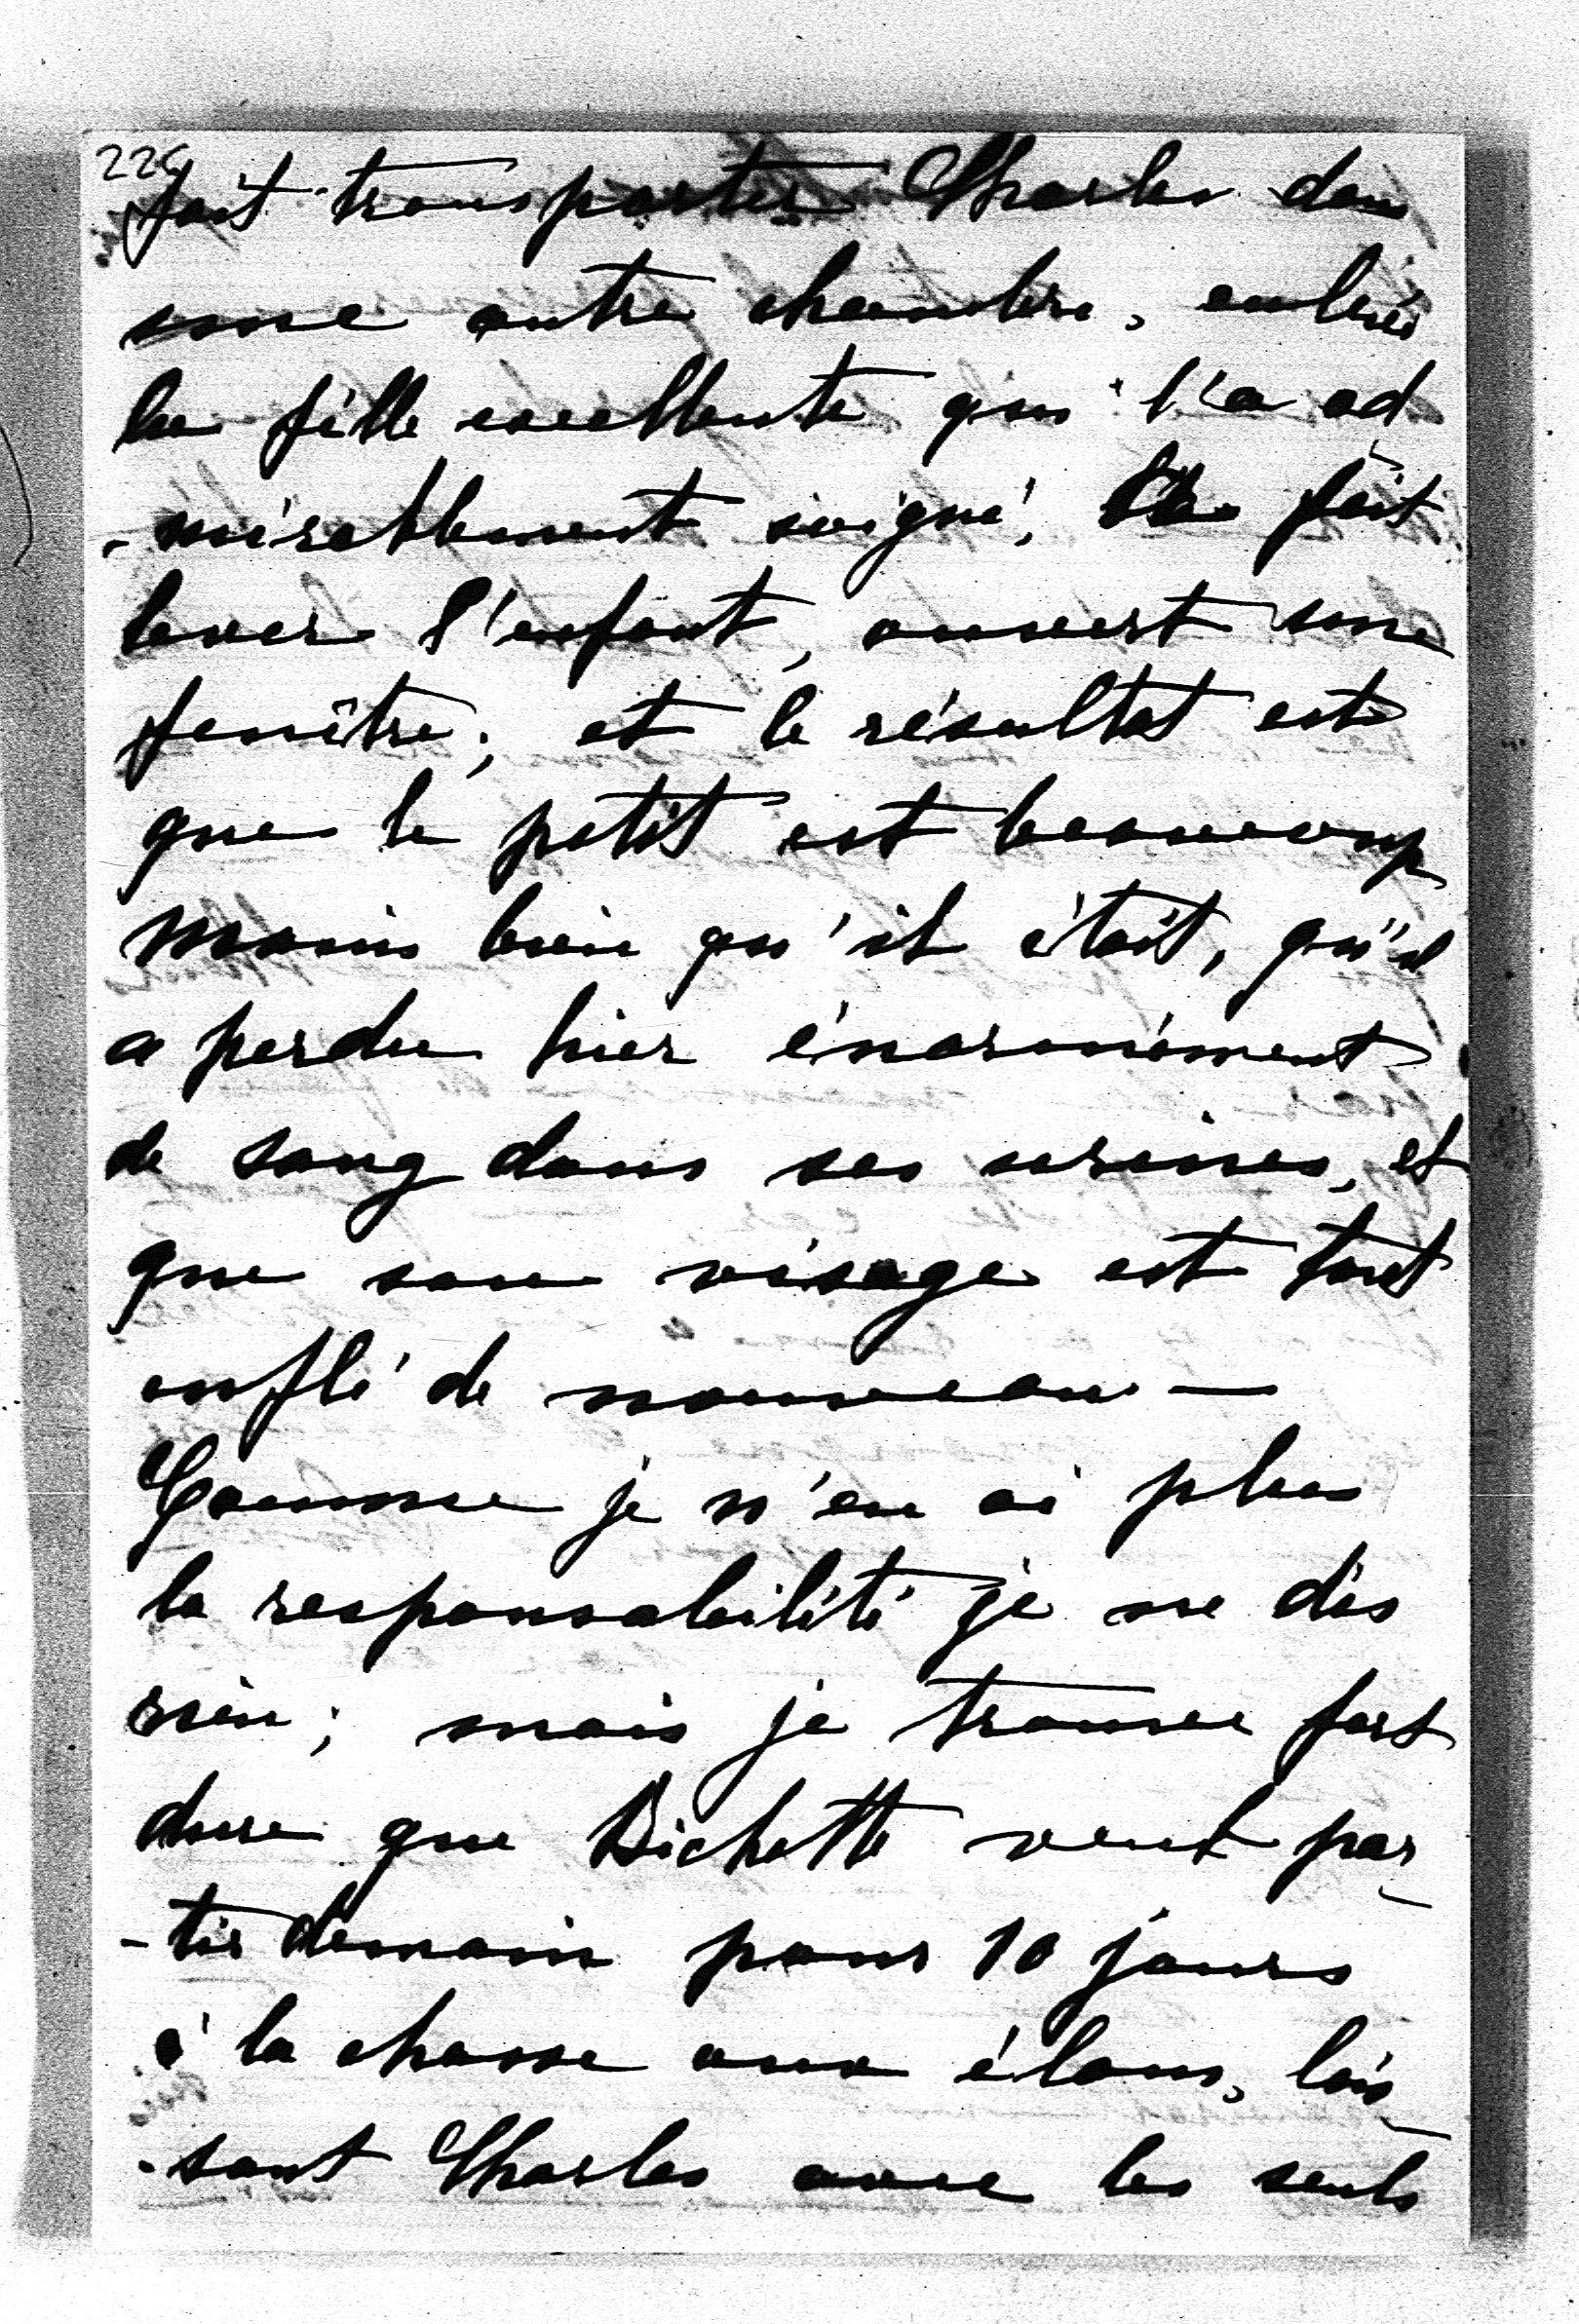 226
fait transporter Charles dans
une autre chambre, enlevé
la fille excellente qui l'a ad
-mirablement soigné, fait
lever l'enfant, ouvert une
fenêtre; et le résultat est
que le petit est beaucoup
moins bien qu'il était, qu'il
a perdu hier énormément
de sang dans ses urines, et
que son visage est tout
enflé de nouveau —
Comme je n'en ai plus
la responsabilité je ne dis
rien; mais je trouve fort
dure que Bichette veut par
-tir demain pour 10 jours
à la chasse aux élans, lais
-sant Charles avec les seuls